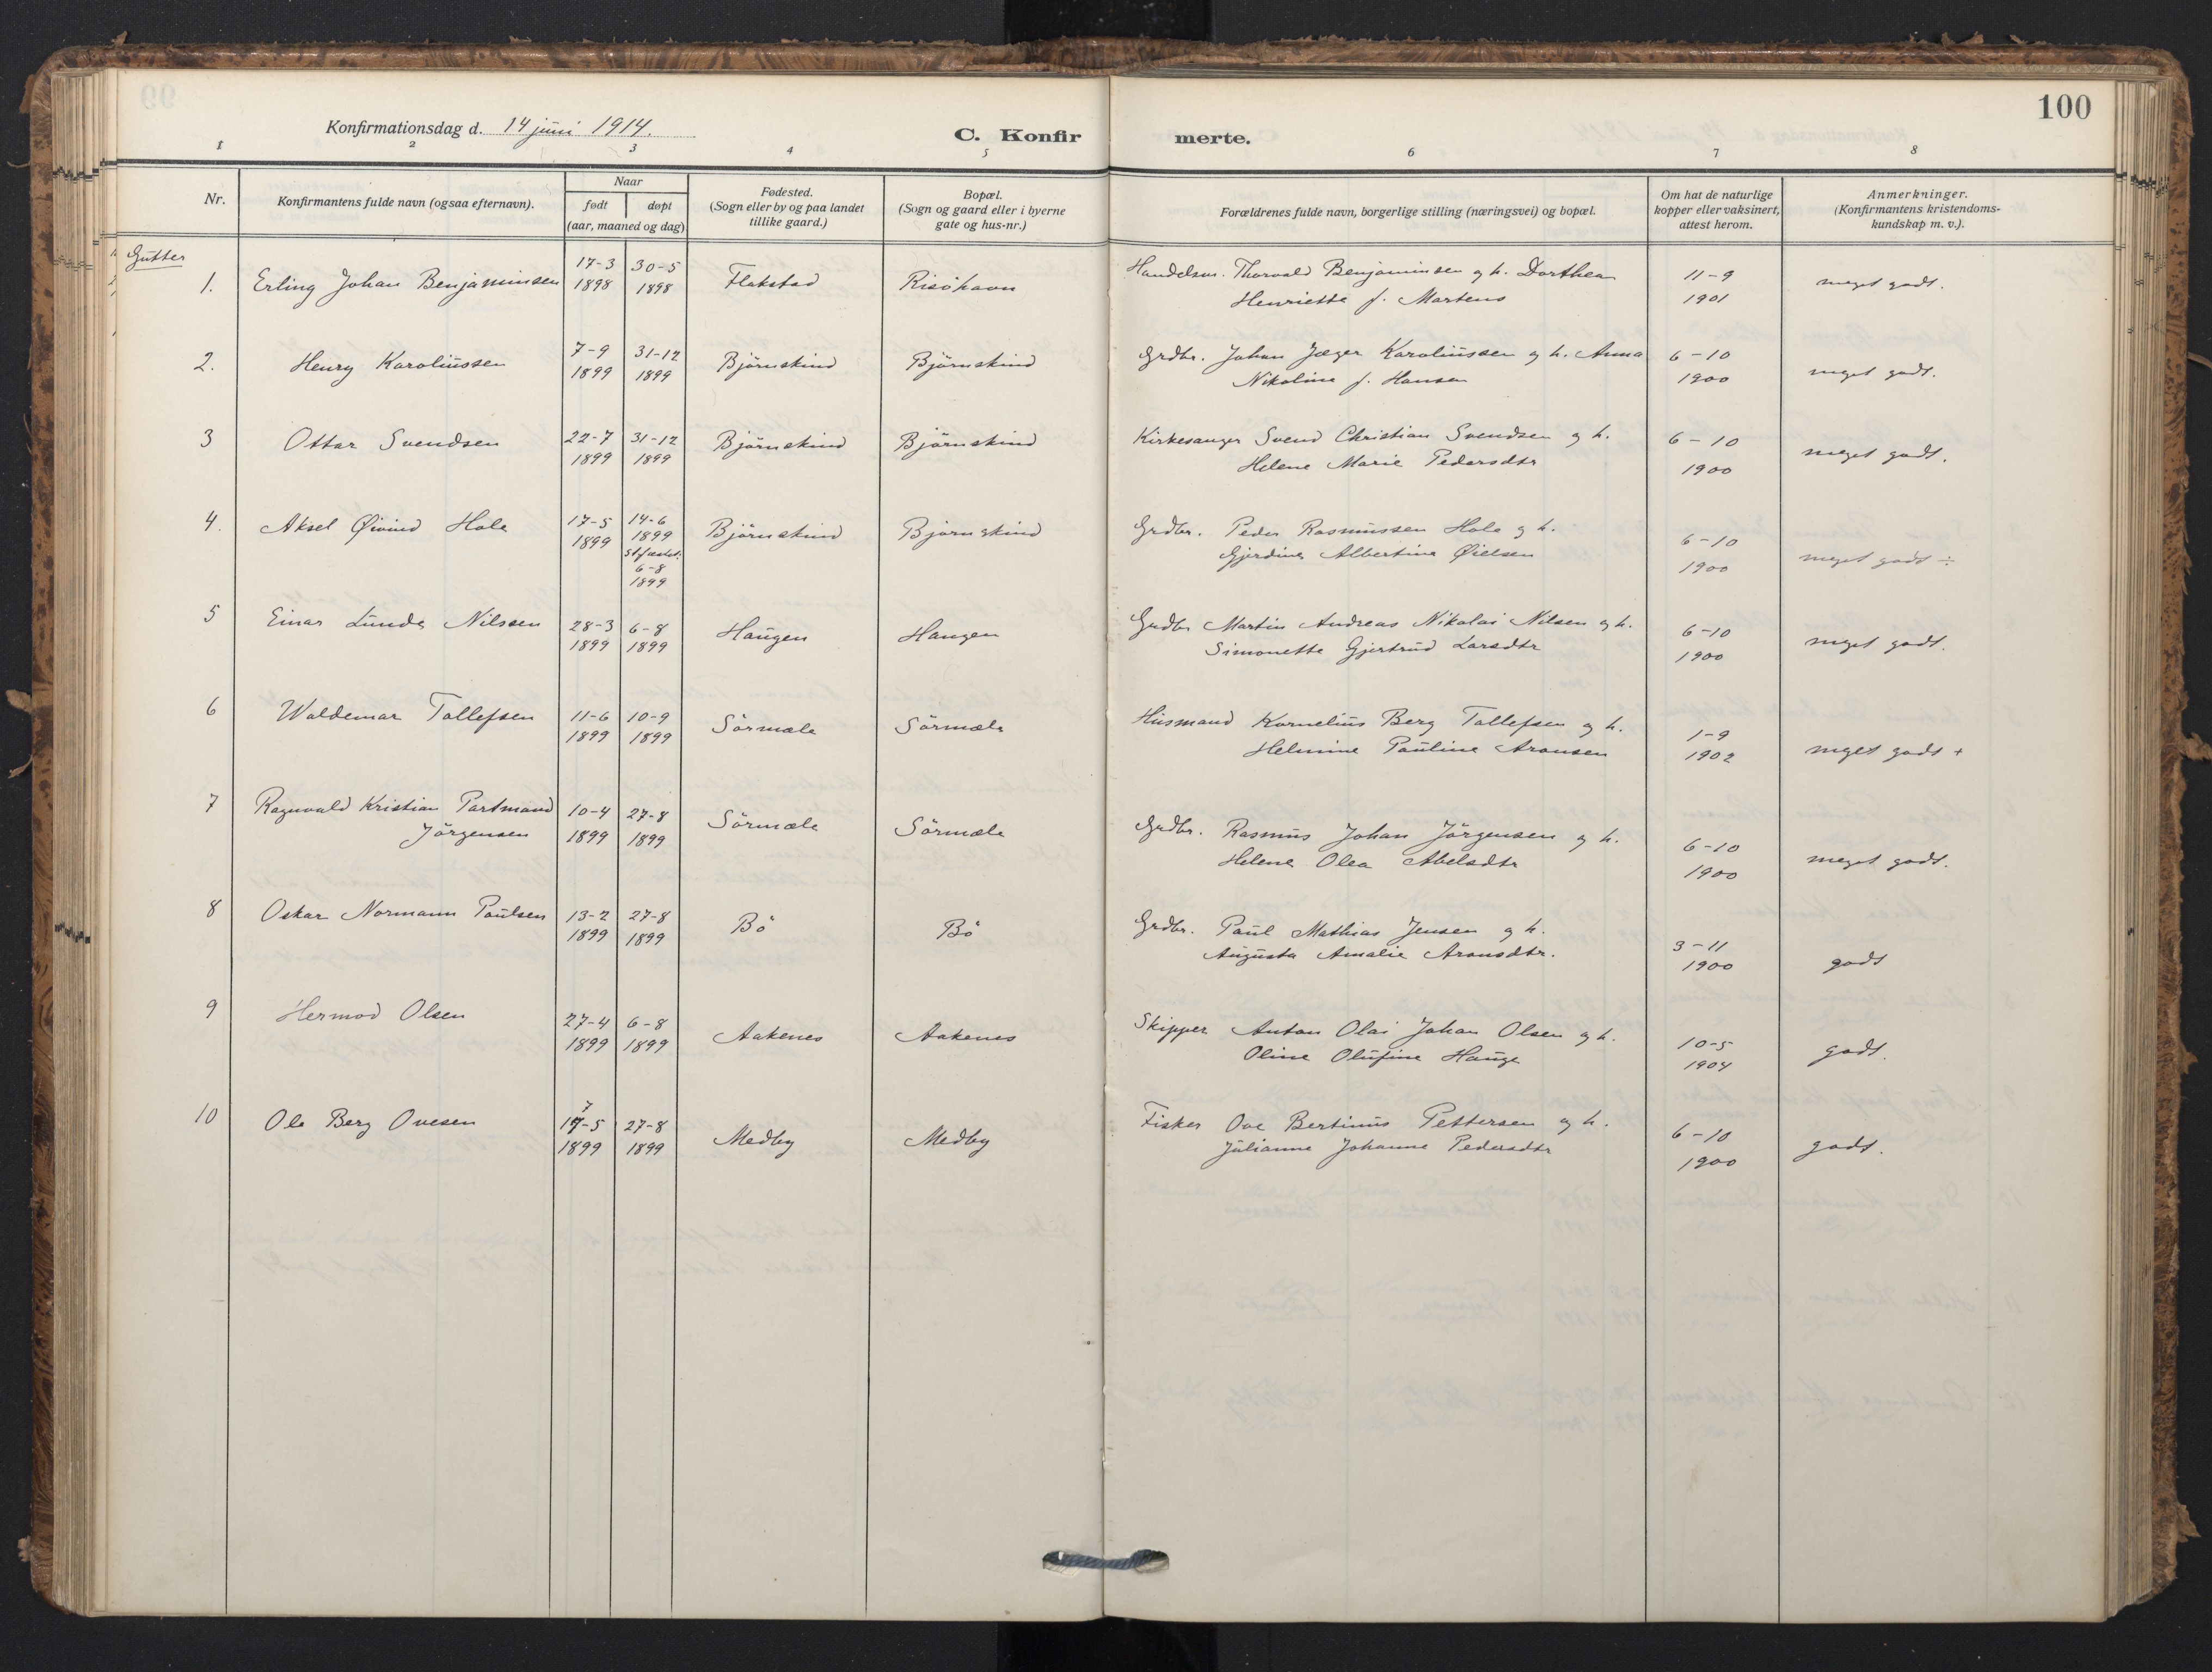 Konfirmationsdag d. 14 juni 1914.
C. Konfirmerte.
100
1 2 3 4 5 6 7 8
Nr.
Konfirmantens fulde navn (ogsaa efternavn).
Naar
født døpt
(aar, maaned og dag)
Fødested.
(Sogn eller by og paa landet
tillike gaard.)
Bopæl.
(Sogn og gaard eller i byerne
gate og hus-nr.)
Forældrenes fulde navn, borgerlige stilling (næringsvei) og bopæl.
Om hat de naturlige
kopper eller vaksinert,
attest herom.
Anmerkninger.
(Konfirmantens kristendoms-
kundskap m. v.).
Gutter
1. Erling Johan Benjaminsen 17-3 30-5 Flakstad Risöhavn Handelsm. Thorvald Benjaminsen og h. Dorthea 11-9 meget godt.
1898 1898 Henriette f. Martens 1901
2. Henry Karoliussen 7-9 31-12 Björnskind Björnskind Grdbr. Johan Jæger Karoliussen og h. Anna 6-10 meget godt.
1899 1899 Nikoline f. Hansen 1900
3 Ottar Svendsen 22-7 31-12 Björnskind Björnskind Kirkesanger Svend Christian Svendsen og h. 6-10 meget godt.
1899 1899 Helene Marie Pedersdtr 1900
4. Aksel Øivind Hole 17-5 14-6 Björnskind Björnskind Grdbr. Peder Rasmussen Hole og h. 6-10 meget godt ÷
1899 1899 Gjerdine Albertine 1900
Stfæstet.
6-8
1899
5 Einar Lunde Nilssen 28-3 6-8 Haugen Haugen Grdbr Martin Andreas Nikolai Nilsen og h. 6-10 meget godt.
1899 1899 Simonette Gjertrud Larsdtr 1900
6 Waldemar Tollefsen 11-6 10-9 Sörmæle Sörmæle Husmand Kornelius Berg Tollefsen og h. 1-9 meget godt +
1899 1899 Helmine Pauline Aronsen 1902
7 Ragnvald Kristian Partmand 10-4 27-8 Sörmæle Sörmæle Grdbr. Rasmus Johan Jörgensen og h. 6-10 meget godt.
Jörgensen 1899 1899 Helene Olea Abelsdtr 1900
8 Oskar Normann Paulsen 13-2 27-8 Bö Bö Grdbr. Paul Mathias Jensen og h. 3-11 godt
1899 1899 Augusta Amalie Aronsdtr. 1900
9 Hermod Olsen 27-4 6-8 Aakenes Aakenes Skipper Anton Olai Johan Olsen og h. 10-5 godt.
1899 1899 Oline Olufine Hauge 1904
10 Ole Berg Ovesen 17-5 27-8 Medby Medby Fisker Ove Bertinus Pettersen og h. 6-10 godt.
1899 1899 Julianne Johanne Pedersdtr 1900